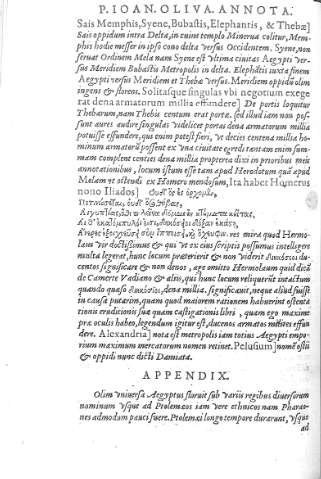 P. IOAN. OLIVA. ANNOTA.
Sais Memphis, Syene, Bubastis, Elephantis, & Thebæ]
Sais oppidum intra Delta, in cuius templo Minerva colitur, Mem-
phis hodie messer in ipso cono delta versus Occidentem. Syene, non
seruat Ordinem Mela nam Syene est vltima ciuitas Aegypti ver-
sus Meridiem Bubastis Metropolis in delta. Elephatis iuxta finem
Aegypti versus Meridiem et Thebæ versus. Meridiem oppidũ olim
ingens & florens. Solitasque singulas vbi negotium exege
rat dena armatorum millia effundere] De portis loquitur
Thebarum, nam Thebis centum erāt portæ. sed illud iam non pos-
sunt aures audire singulas videlicet portas dena armatorum millia
potuisse effundere, qui enim potest fieri, vt decies centena millia ho-
minum armatorũ possent ex vna ciuitate egredi tantam enim sum-
mam complent centies dena millia propterea dixi in prioribus meis
annotationibus, locum istum esse tam apud Herodotum quā apud
Melam vt ostendi ex Homero mendosum, Ita habet Homerus
nono Iliados]
res mira quod Hermo-
laus vir doctissimus & qui vt ex eius scriptis possumus intelligere
multa legerat, hunc locum præterierit & non viderit διακόσιοι du-
centos significare & non denos, ego omitto Hermolaum quid dicā
de Camerte Vadiano & aliis, qui hunc locum reliquerũt intactum
quando quæso διακόσιοι, dena millia significant, neque aliud fuisse
in causa putarim, quam quod maiorem rationem habuerint ostenta
tionis eruditionis suæ quam castigationis libri, quam ego maxime
præ oculis habeo, legendum igitur est, ducenos armatos milites effun
dere. Alexandria] nota est metropolis iam totius Aegypti empo-
rium maximum mercatorum nomen retinet. Pelusium] nomẽ ostii
& oppidi nunc dicti Damiata.
APPENDIX.
Olim vniuersa Aegyptus floruit sub variis regibus diuersorum
nominum vsque ad Ptolemæos iam vere ethnicos nam Pharao-
nes admodum pauci fuere. Ptolemæi longo tempore durarunt, vsque
ad